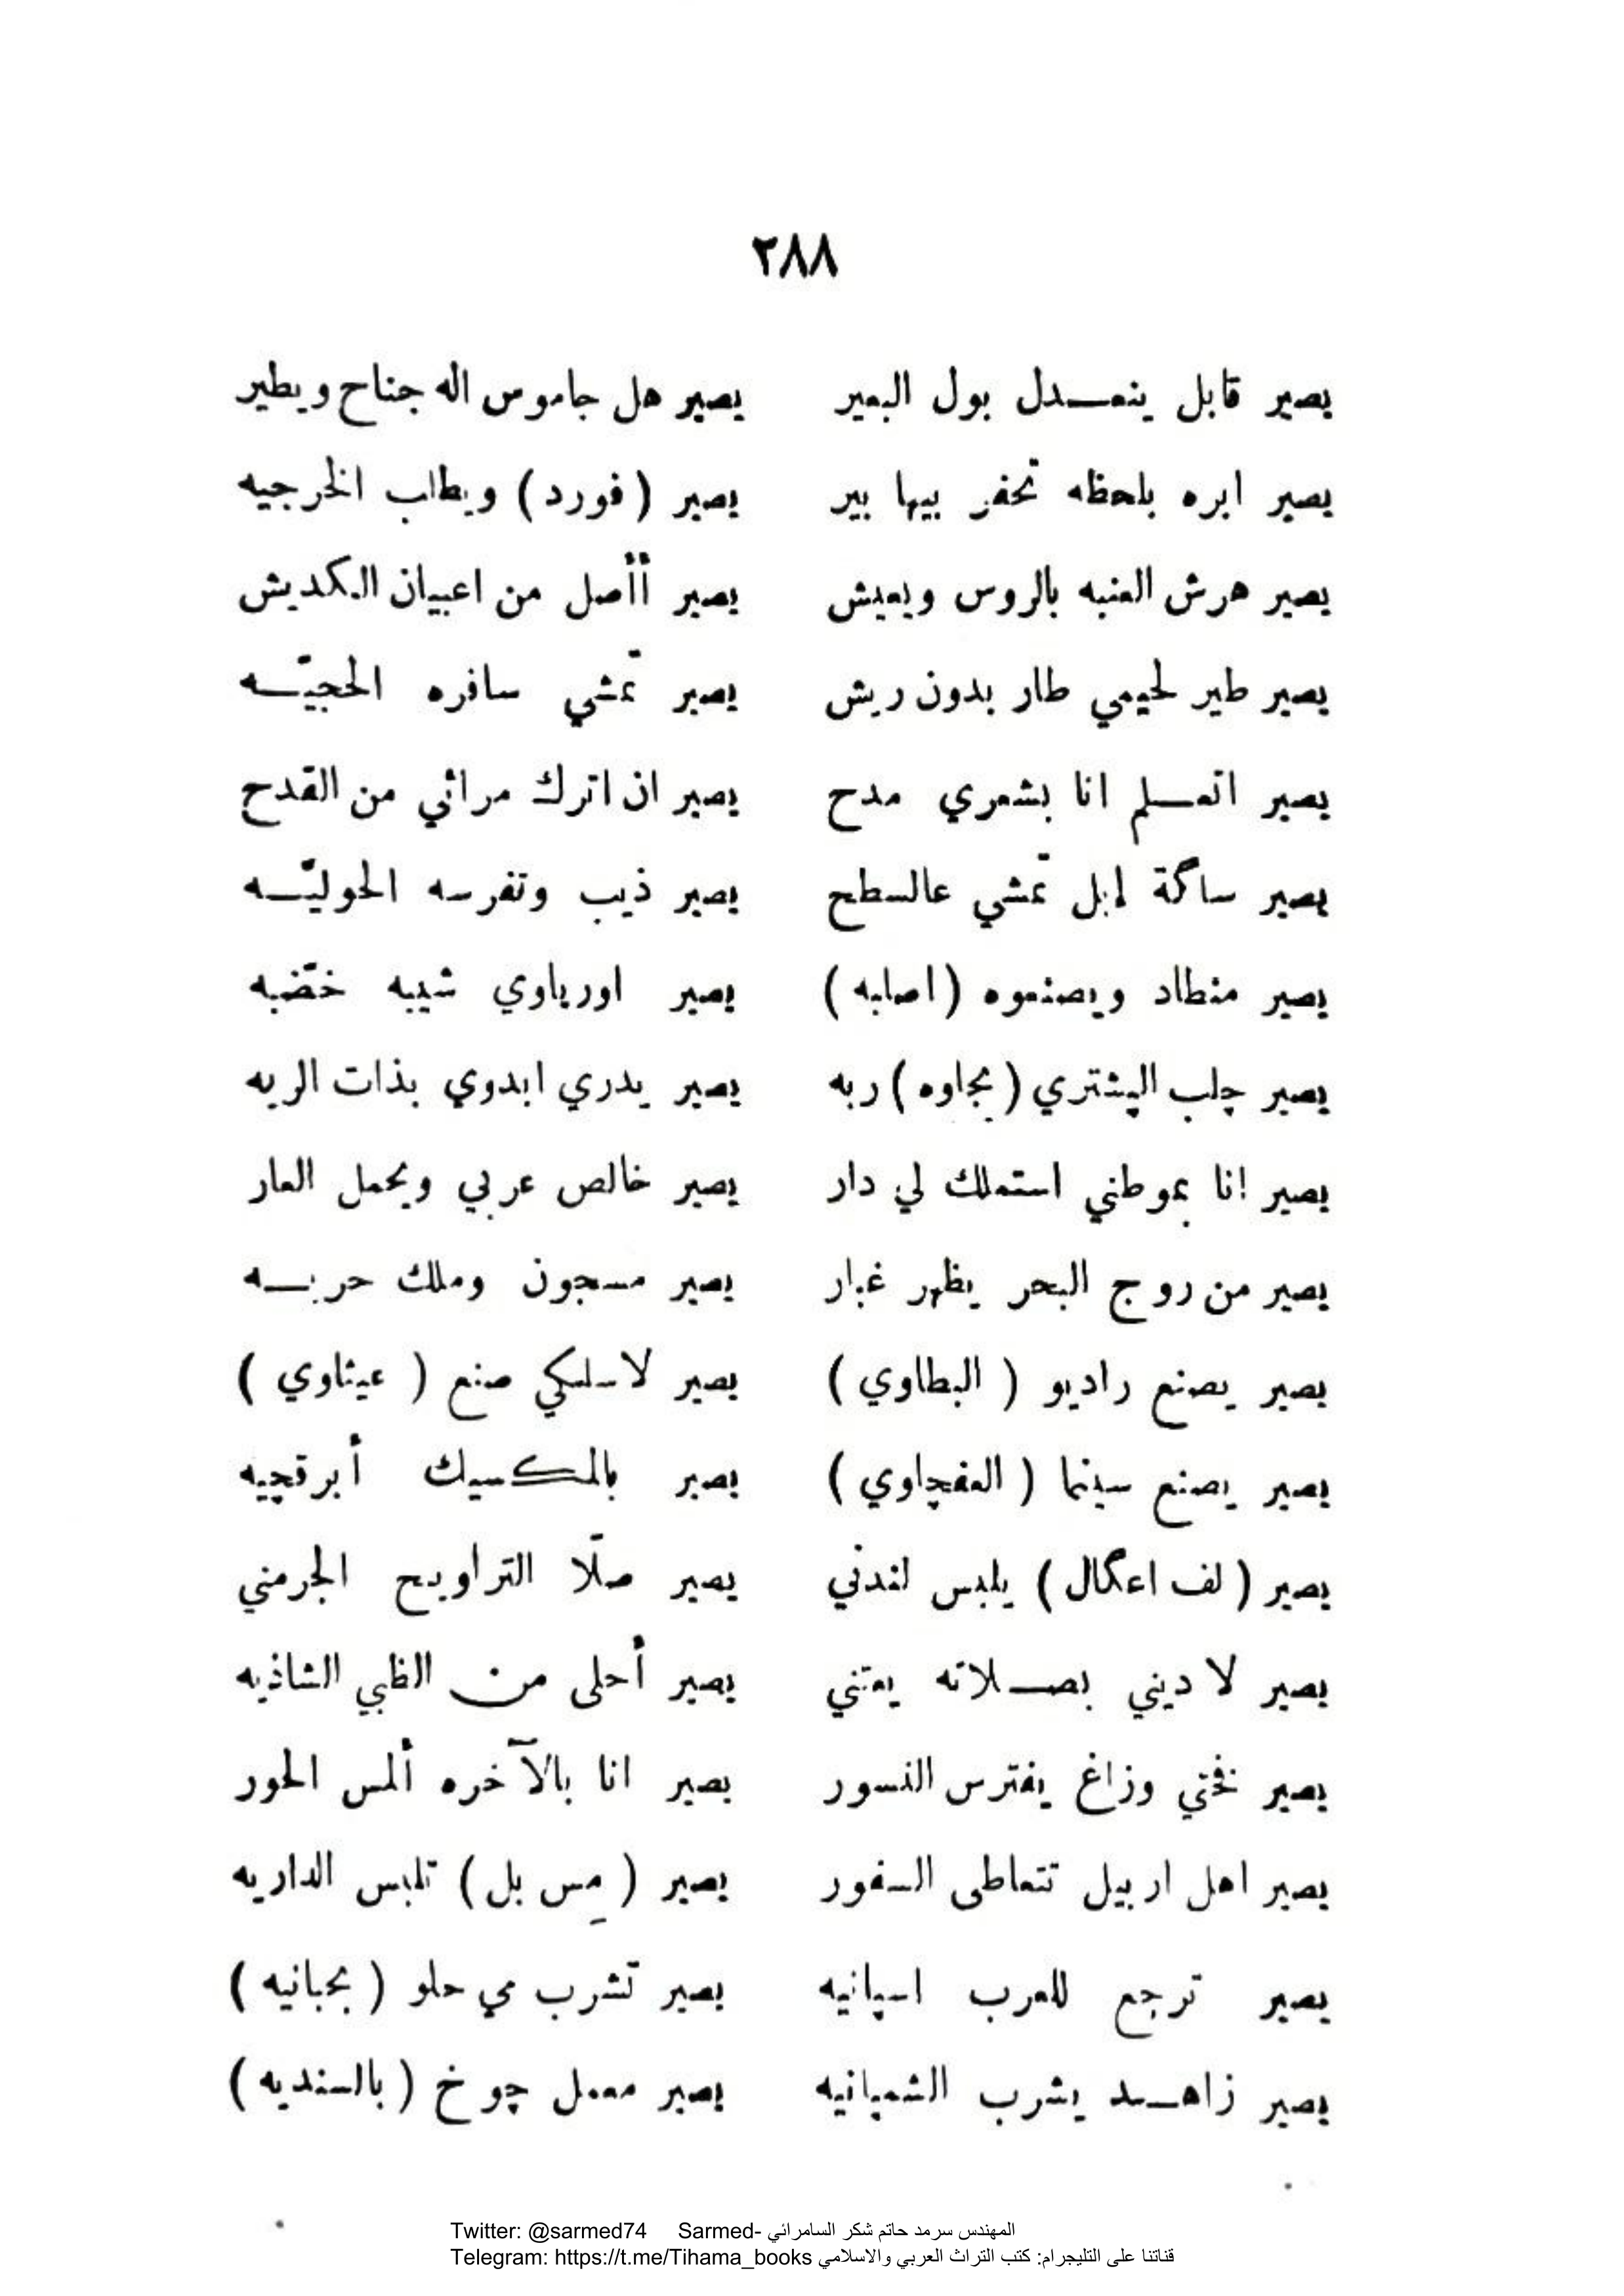 ٢٨٨
يصير قابل ينعـــدل بول البعير يصير هل جاموس اله جناح ويطير
يصير ابره بلحظه تحفر بيها بير يصير ( فورد ) ويطلب الخرجيه
يصير هرش العنبه بالروس ويعيش يصير أأصل من اعبيان الكديش
يصير طير لحيمي طار بدون ريش يصير تمشي سافره الحجيّـــه
يصير اتعـــلم انا بشعري مدح يصير ان اترك مراثي من القدح
يصير ساگة إبل تمشي عالسطح يصير ذيب وتفرسه الحوليّـــه
يصير منطاد ويصنعوه ( اصلبه ) يصير اورپاوي شيبه خضّبه
يصير چلب الپشتري ( بجاوه ) ربه يصير يدري ابدوي بذات الريه
يصير انا بموطني استملك لي دار يصير خالص عربي ويحمل العار
يصير من روج البحر يظهر غبار يصير مسجون وملك حريـــه
يصير يصنع راديو ( البطاوي ) يصير لاسلكي صنع ( عيثاوي )
يصير يصنع سينما ( العفچاوي ) يصير بالمكسيك أبرقچيه
يصير ( لف اعگال ) يلبس لندني يصير صلّا التراويح الجرمني
يصير لا ديني بصـــلاته يعتني يصير أحلى من الظبي الشاذيه
يصير فختي وزاغ يفترس النسور يصير انا بالآخره ألمس الحور
يصير اهل اربيل تتعاطى السفور يصير ( مِس بل ) تلبس الداريه
يصير ترجع للعرب اسپانيه يصير تشرب مي حلو ( بجبانيه )
يصير زاهـــد يشرب الشمپانيه يصير معمل چوخ ( بالسنديه )
Twitter: @sarmed74 Sarmed- المهندس سرمد حاتم شكر السامرائي
Telegram: https://t.me/Tihama_books قناتنا على التليجرام: كتب التراث العربي والاسلامي